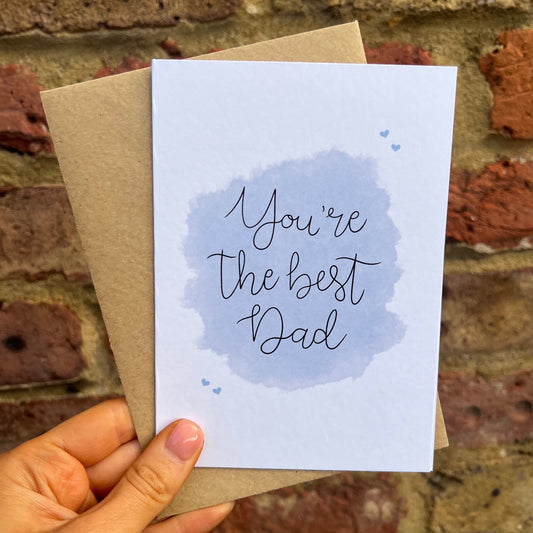 You're
the best
Dad